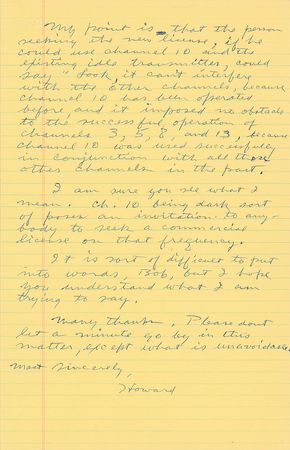 My point is that the person
seeking the new license, if he
could use channel 10 and the
existing idle transmitter, could
say "Look, it can't interfere
with the other channels, because
channel 10 has been operated
before and it imposed no obstacle
to the successful operation of
channels 3, 5, 8, and 13, because
channel 10 was used successfully
in conjunction with all these
other channels in the past.
I am sure you see what I
mean. Ch. 10 being dark sort
of poses an invitation to any-
body to seek a commercial
license on that frequency.
It is sort of difficult to put
into words, Bob, but I hope
you understand what I am
trying to say.
Many thanks. Please don't
let a minute go by in this
matter, except what is unavoidable.
Most sincerely,
Howard